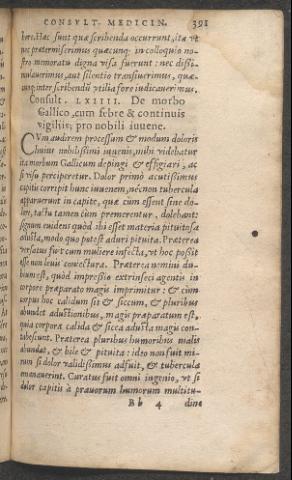 CONSVLT. MEDICIN. 391
bere. Hæc sunt quæ scribenda occurrunt, ita vt
nec prætermiserimus quæcunq; in colloquio no-
stro memoratu digna visa fuerunt: nec dissi-
mulauerimus, aut silentio transiuerimus, quæ-
cunq; inter scribendū vtilia fore iudicauerimus.
Consult. LXIIII. De morbo
Gallico, cum febre & continuis
vigiliis, pro nobili iuuene.
CVm audirem processum & modum doloris
huius nobilissimi iuuenis, mihi videbatur
ita morbum Gallicum depingi & effigiari, ac
si viso perciperetur. Dolor primo acutissimus
capitis corripit hunc iuuenem, nécnon tubercula
apparuerunt in capite, quæ cùm essent sine do-
lore, tactu tamen cùm premerentur, dolebant:
signum euidens quòd ibi esset materia pituitosa
adusta, modo quo potest aduri pituita. Præterea
versatus fuit cum muliere infecta, vt hoc possit
esse non leuis coniectura. Præterea nemini du-
bium est, quòd impressio extrinseci agentis in
corpore præparato magis imprimitur: & cùm
corpus hoc calidum sit & siccum, & pluribus
abundet adustionibus, magis præparatum est,
quia corpora calida & sicca adusta magis con-
tabescunt. Præterea pluribus humoribus malis
abundat, & bile & pituita: ideo non fuit mi-
rum si dolor validissimus adfuit, & tubercula
manauerint. Curatus fuit omni ingenio, vt si
dolor capitis à prauorum humorum multitu-
Bb 4 dine